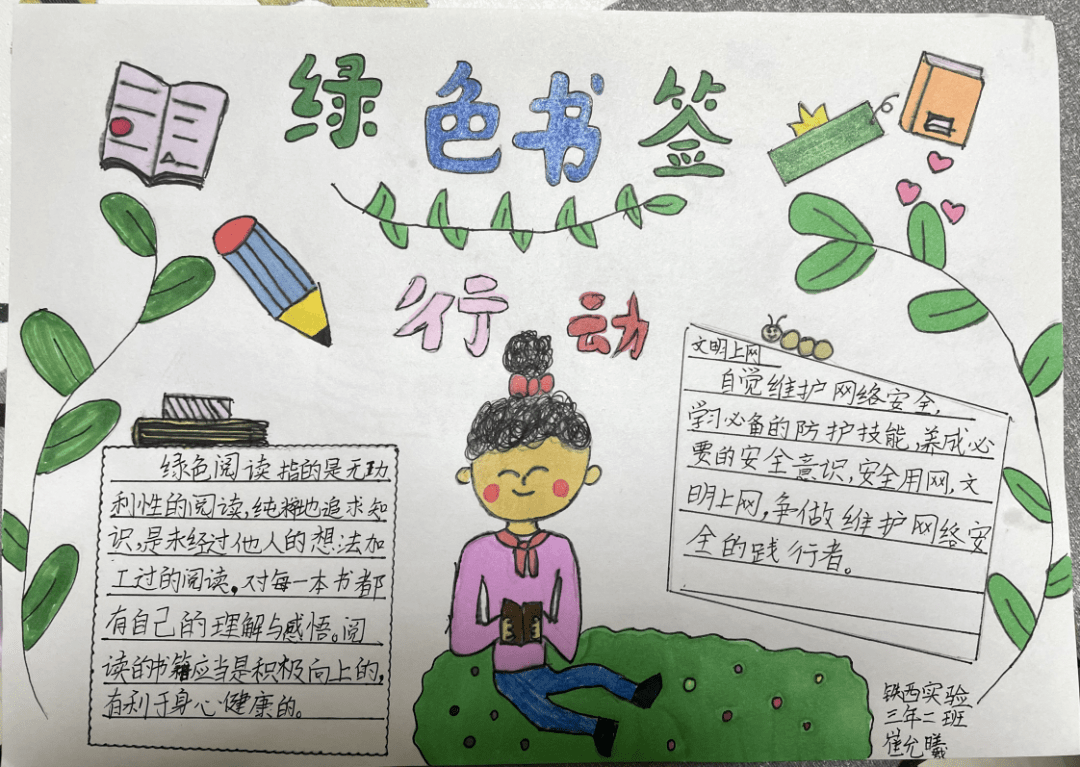 绿色书签
行动
绿色阅读指的是无功
利性的阅读,纯粹地追求知
识,是未经过他人的想法加
工过的阅读。对每一本书都
有自己的理解与感悟。阅
读的书籍应当是积极向上的,
有利于身心健康的。
文明上网
自觉维护网络安全,
学习必备的防护技能,养成必
要的安全意识,安全用网,文
明上网,争做维护网络安
全的践行者。
铁西实验
三年二班
崔允曦